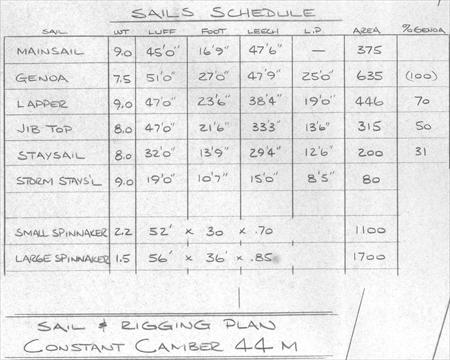 SAILS SCHEDULE
SAIL WT LUFF FOOT LEECH L.P. AREA % GENOA
MAINSAIL 9.0 45'0" 16'9" 47'6" — 375
GENOA 7.5 51'0" 27'0" 47'9" 25'0" 635 (100)
LAPPER 9.0 47'0" 23'6" 38'4" 19'0" 446 70
JIB TOP 8.0 47'0" 21'6" 33'3" 13'6" 315 50
STAYSAIL 8.0 32'0" 13'9" 29'4" 12'6" 200 31
STORM STAYS'L 9.0 19'0" 10'7" 15'0" 8'5" 80
SMALL SPINNAKER 2.2 52' × 30 × .70 1100
LARGE SPINNAKER 1.5 56' × 36' × .85 1700
SAIL & RIGGING PLAN
CONSTANT CAMBER 44 M